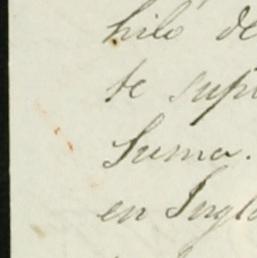 hilo de
te supl
Suma.
en Ingla